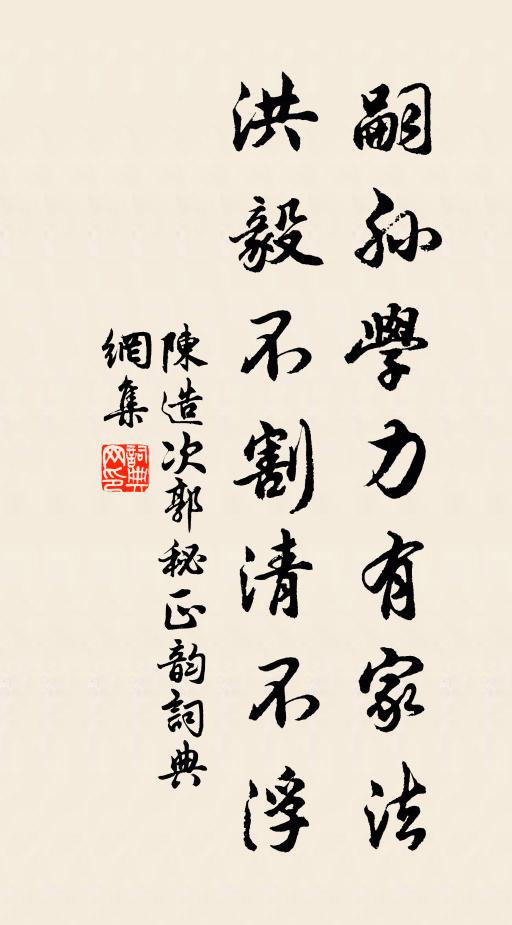 嗣孫學力有家法
洪毅不割清不浮
陳造次郭秘正韵詞典
網集
詞典
网印